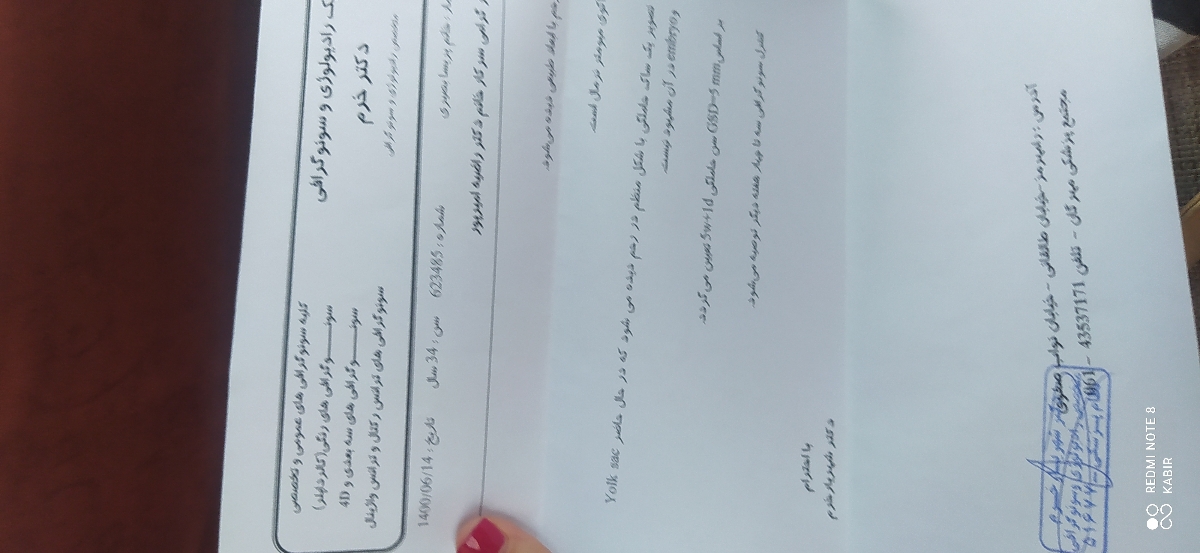 ک رادیولوژی و سونوگرافی
دکتر خرم
متخصص رادیولوژی و سونوگرافی
کلیه سونوگرافی های عمومی و تخصصی
سونوگرافی های رنگی (کالر داپلر)
سونوگرافی های سه بعدی و 4D
سونوگرافی های ترانس رکتال و ترانس واژینال
خانم پریسا شماره : 623485 سن : 34 سال تاریخ : 1400/06/14
گرامی سرکار خانم دکتر راضیه امیرپور
با ابعاد طبیعی دیده می‌شود.
میومتر نرمال است.
تصویر یک ساک حاملگی با شکل منظم در رحم دیده می شود که در حال حاضر Yolk sac
و embryo در آن مشهود نیست.
بر اساس GSD=5 mm سن حاملگی 5w+1d تعیین می گردد.
کنترل سونوگرافی سه تا چهار هفته دیگر توصیه می‌شود.
با احترام
دکتر شهریار خرم
آدرس : رامهرمز - خیابان طالقانی - خیابان نواب
مجتمع پزشکی مهرگان - تلفن 43537171 -
REDMI NOTE 8
KABIR